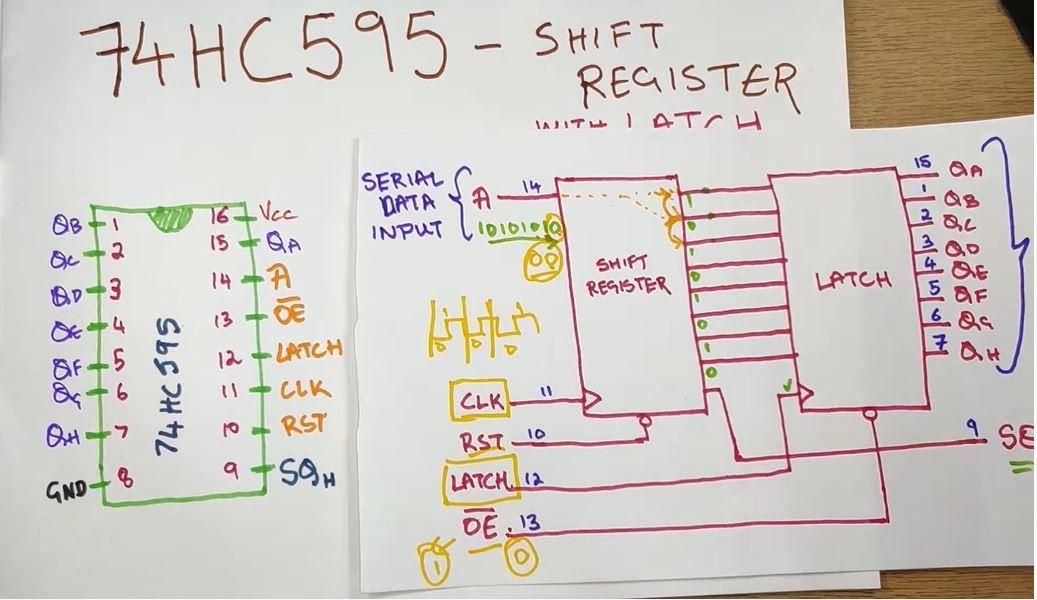 74HC595 - SHIFT
REGISTER
WITH LATCH
QB 1
QC 2
QD 3
QE 4
QF 5
QG 6
QH 7
GND 8
74HC595
16 VCC
15 QA
14 A
13 OE
12 LATCH
11 CLK
10 RST
9 SQH
SERIAL
DATA
INPUT
A 14
10101010
SHIFT
REGISTER
1
0
1
0
1
0
1
0
LATCH
15 QA
1 QB
2 QC
3 QD
4 QE
5 QF
6 QG
7 QH
CLK 11
RST 10
LATCH 12
OE 13
1 0
9 SE